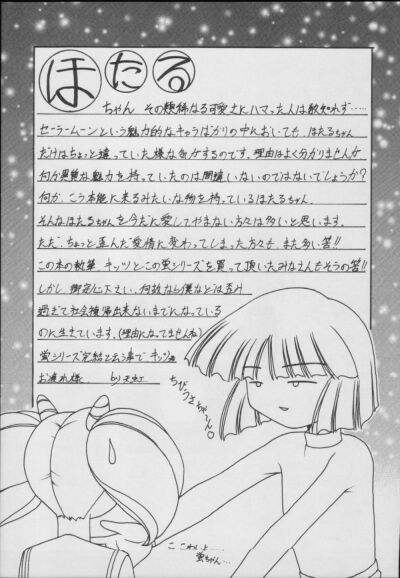 ほたる
ちゃん その類稀なる可愛さにハマった人は数知れず……
セーラームーンという魅力的なキャラばかりの中においても、ほたるちゃん
だけはちょっと違っていた様な気がするのです。理由はよく分かりませんが
何か異質な魅力を持っていたのは間違いないのではないでしょうか?
何か、こう本能に来るみたいな物を持っているほたるちゃん、
そんなほたるちゃんを今だに愛してやまない方々は多いと思います。
ただ、ちょっと歪んだ愛情に変わってしまった方々も また多い筈!!
この本の執筆、キッツとこの蛍シリーズを買って頂いたみなさんもそうの筈!!
しかし 御安心下さい、何故なら僕などは歪み
過ぎて社会復帰出来ないまでになっている
のに生きています。(理由になってませんね)
蛍シリーズ完結と云う事で キッツ
お疲れ様、 by
ちびうさちゃ〜ん
こ、こわいよ……
蛍ちゃん…